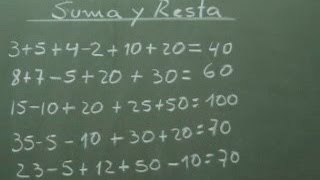 Suma y Resta
3+5+4-2+10+20=40
8+7-5+20+30=60
15-10+20+25+50=100
35-5-10+30+20=70
23-5+12+50-10=70